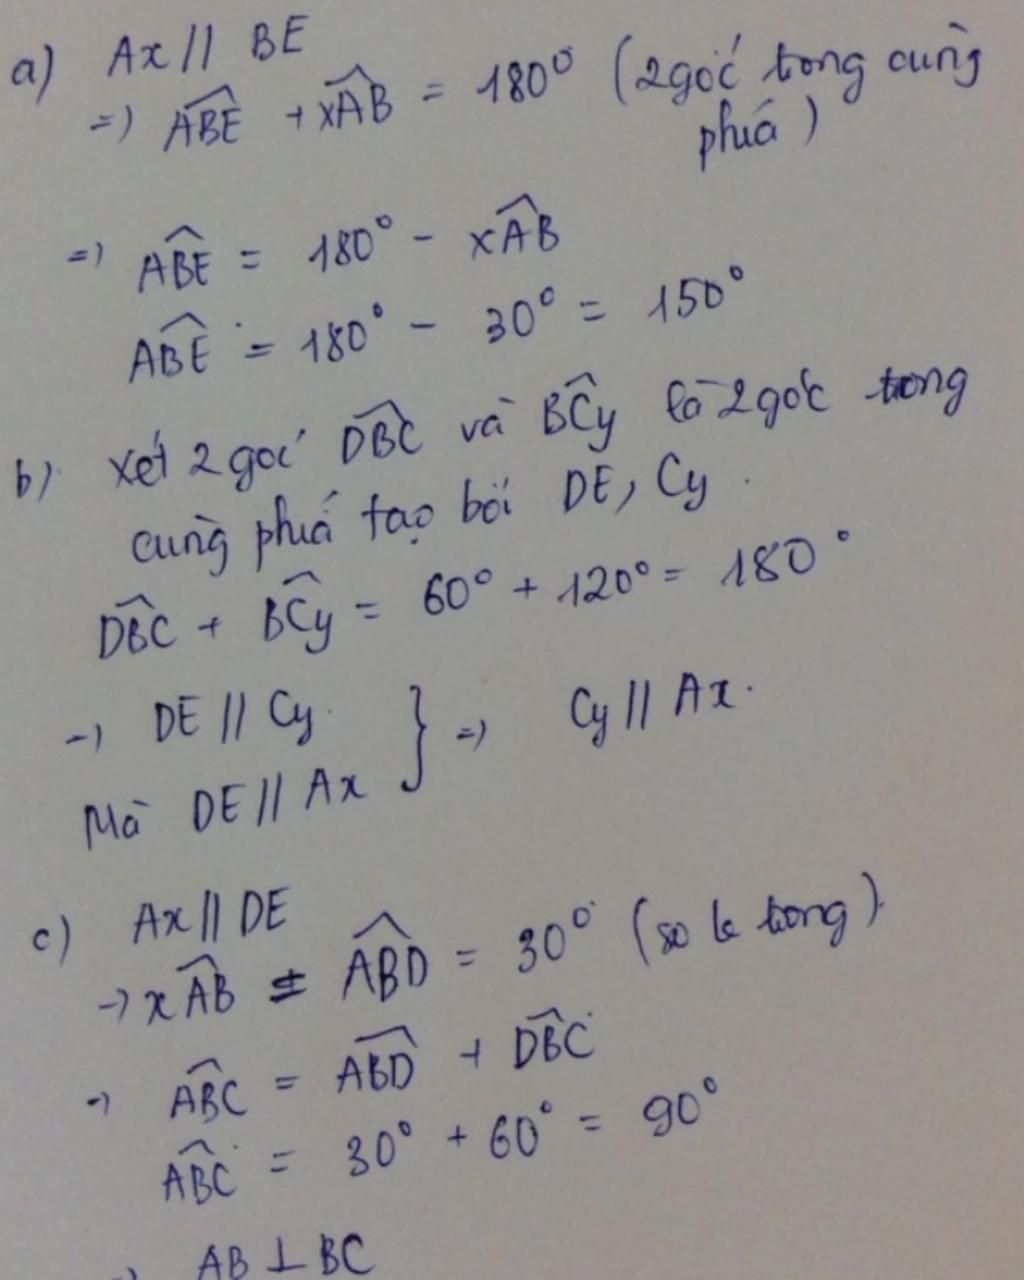 a) Ax // BE
=) ABÊ + xÂB = 180° (2 góc trong cùng
phía)
=) ABÊ = 180° - xÂB
ABÊ = 180° - 30° = 150°
b) Xét 2 góc DB̂C và BĈy là 2 góc trong
cùng phía tạo bởi DE, Cy.
DB̂C + BĈy = 60° + 120° = 180°
-) DE // Cy. } =) Cy // Ax.
Mà DE // Ax
c) Ax // DE
-> xÂB = AB̂D = 30° (so le trong).
-) AB̂C = AB̂D + DB̂C
AB̂C = 30° + 60° = 90°
-) AB ⊥ BC